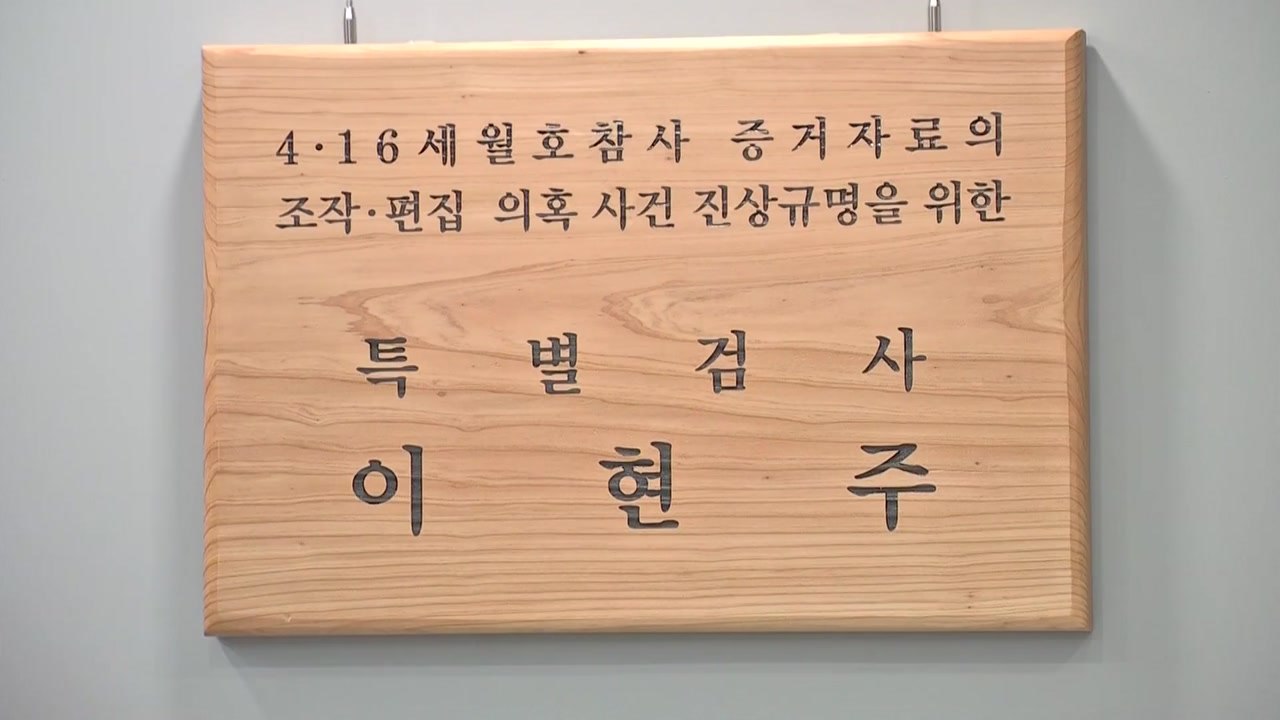 4·16세월호참사 증거자료의
조작·편집 의혹 사건 진상규명을 위한
특별검사
이현주